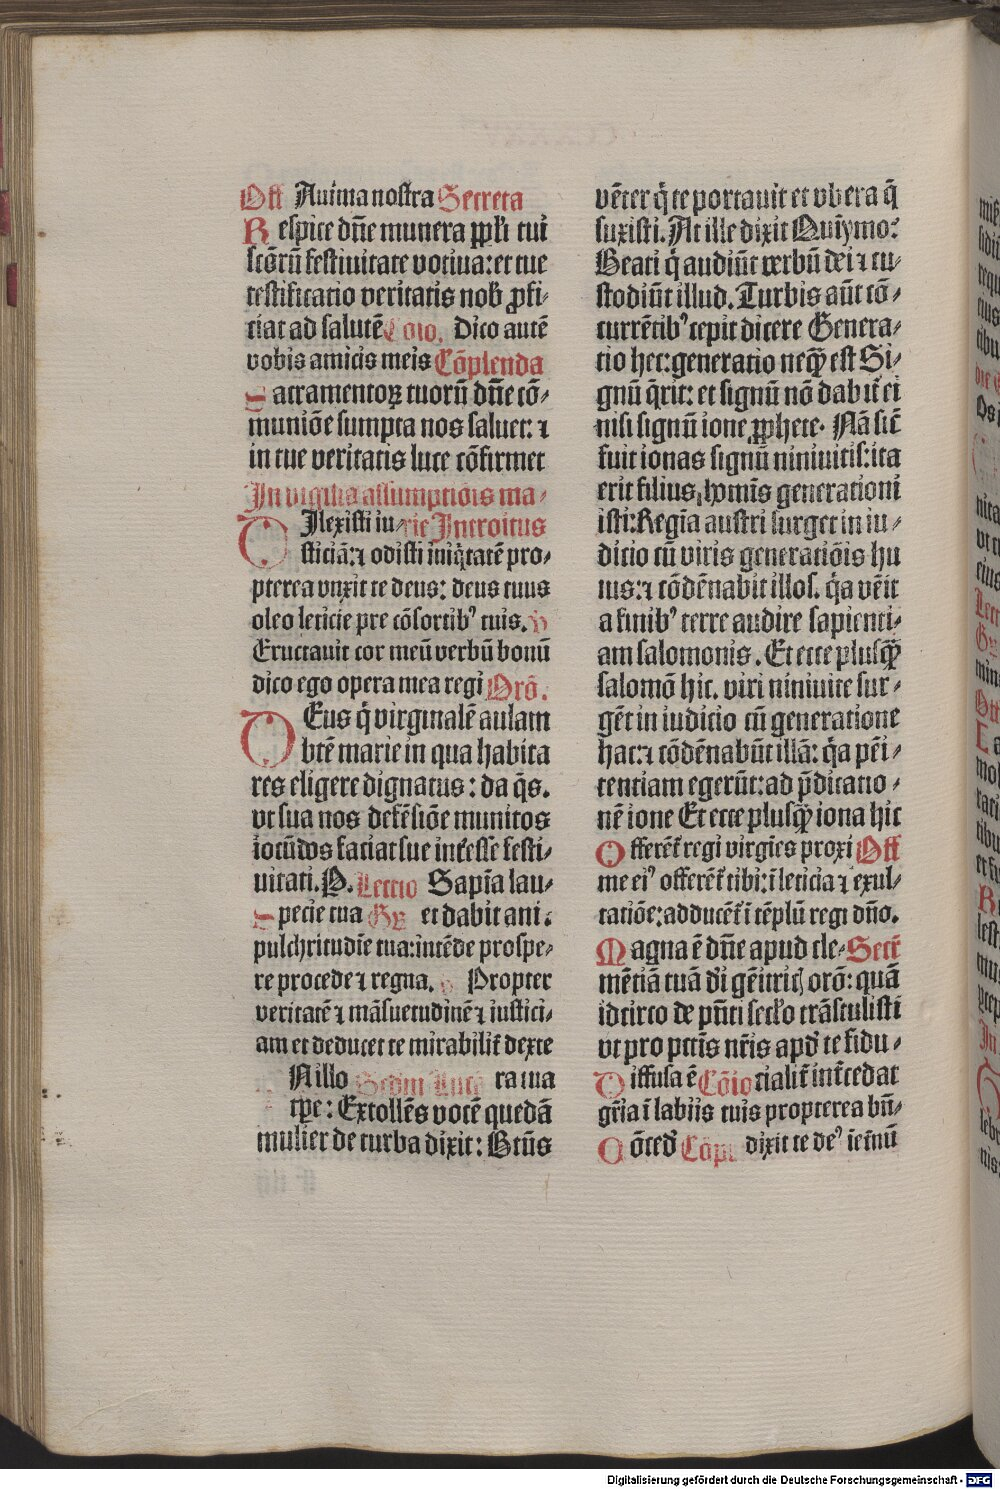 Off Anima nostra Secreta
Respice dn̄e munera ppl'i tui
scōrū festiuitate votiua: et tue
testificatio veritatis nob ꝓfi-
ciat ad salutē Coīo. Dico autē
vobis amicis meis Cōplenda
Sacramentoꝝ tuorū dn̄e cō-
muniōe sumpta nos saluet: ⁊
in tue veritatis luce cōfirmet
In vigilia assumptiōis ma-
Dilexisti iu- rie Introitus
sticiā: ⁊ odisti iniq̇tatē pro-
pterea vnxit te deus: deus tuus
oleo leticie pre cōsortib⁹ tuis. v
Eructauit cor meū verbū bonū
dico ego opera mea regi Orō.
Deus q̇ virginalē aulam
btē marie in qua habita
res eligere dignatus: da q̄s.
vt sua nos defēsiōe munitos
iocūdos faciat sue intēsse festi-
uitati. P. Lectio Sapīa lau-
Specie tua Gr̄ et dabit ani.
pulchritudīe tua: intēde prospe-
re procede ⁊ regna. v Propter
veritatē ⁊ māsuetudinē ⁊ iustici-
am et deducet te mirabilit̄ dexte
N illo Scdm Lucā ra tua
tpe: Extollēs vocē quedā
mulier de turba dixit: Btūs
vēter q̇ te portauit et vbera q̄
suxisti. At ille dixit Quīymo:
Beati q̇ audiūt verbū dei ⁊ cu-
stodiūt illud. Turbis aūt cō-
currētib⁹ cepit dicere Genera-
tio hec: generatio neqꝫ est Si-
gnū q̄rit: et signū nō dabit̄ ei
nisi signū ione ꝓphete. Nā sic̄
fuit ionas signū niniuitis: ita
erit filius hoīnis generationi
isti: Regīa austri surget in iu-
dicio cū viris generatiōis hu
ius: ⁊ cōdēnabit illos. q̇a vēit
a finib⁹ terre audire sapienti-
am salomonis. Et ecce plusqꝫ
salomō hic. viri niniuite sur-
gēt in iudicio cū generatione
hac: ⁊ cōdēnabūt illā: q̇a pēi-
tentiam egerūt: ad p̄dicatio-
nē ione Et ecce plusqꝫ iona hic
Offerēt̄ regi virgīes proxi Off
me ei⁹ offerēt̄ tibi: ī leticia ⁊ exul-
tatiōe: adducēt̄ ī tēplū regi dn̄o.
Magna ē dn̄e apud cle- Secr̄
mētiā tuā dī gēitric̄ orō: quā
idcirco de pn̄ti sec̄lo trāstulisti
vt pro pctīs nr̄is apd̄ te fidu-
Diffusa ē Cōio cialit̄ int̄cedat
gr̄ia ī labiis tuis propterea bn̄-
Cōced̄ Cōpl dixit te de⁹ ī et̄nū
Digitalisierung gefördert durch die Deutsche Forschungsgemeinschaft - DFG